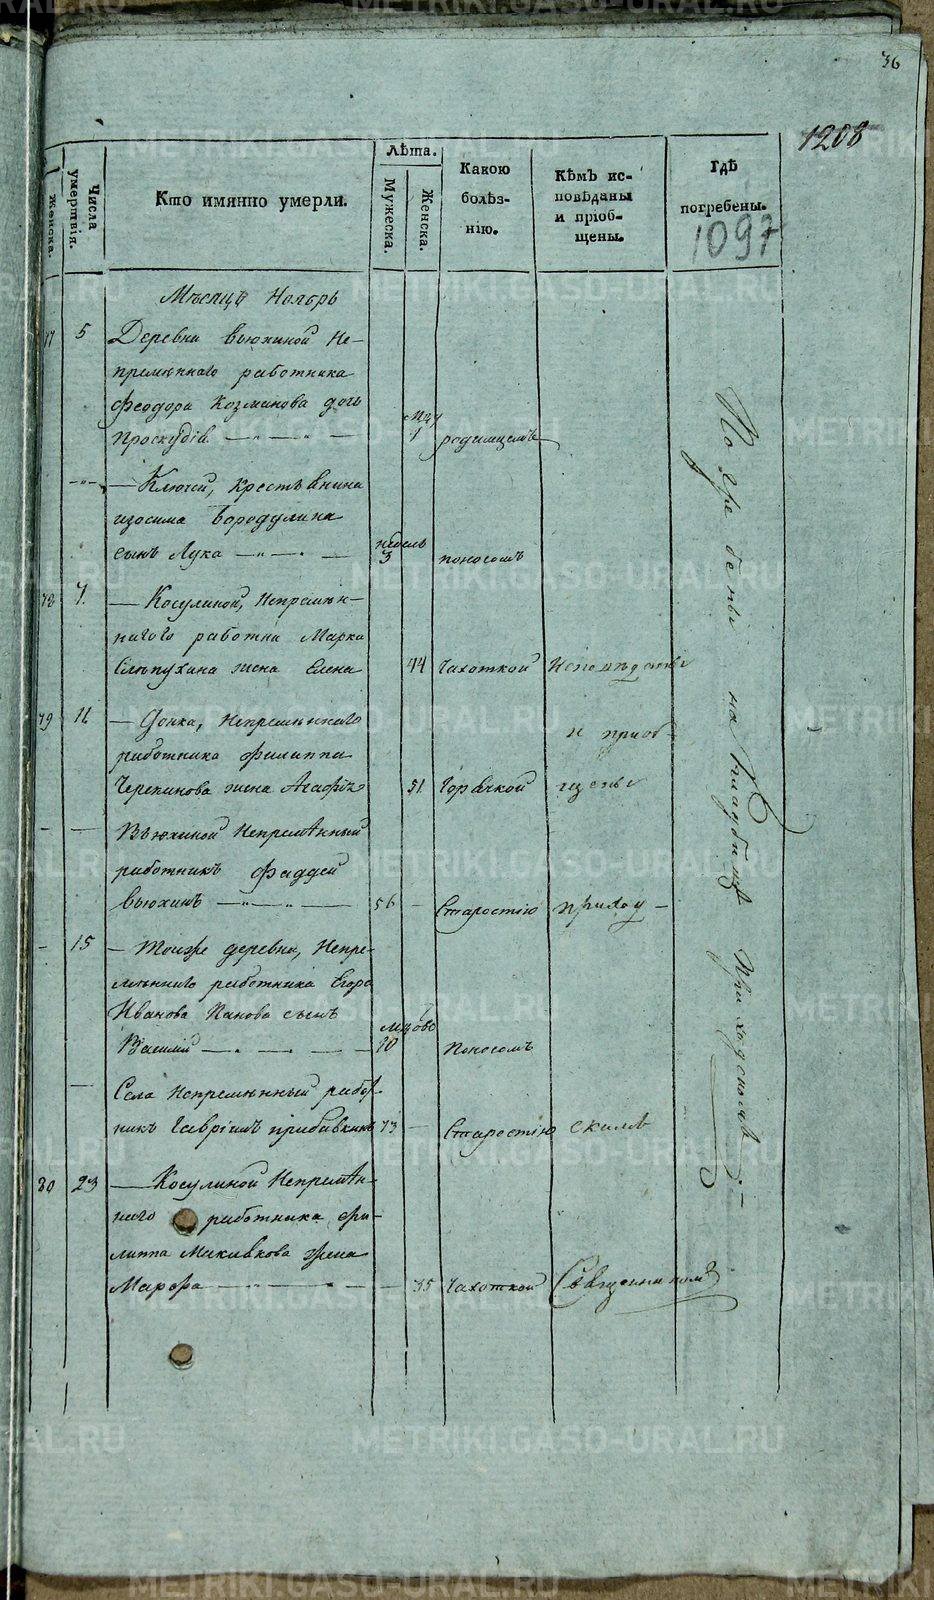 36
1208
Женска.
Числа умертвія.
Кто имянно умерли.
Лѣта.
Мужеска.
Женска.
Какою болѣз-
нію.
Кѣмъ ис-
повѣданы
и пріоб-
щены.
Гдѣ
погребены.
1097
Мѣсяцъ Ноябрь
77 5 Деревни Вьюхиной Не-
премѣннаго работника
Феодора Козманова дочь
1 родимцемъ
Ключей, крестьянина
изосима Бородулина
сынъ Лука недель 3 поносомъ
78 7. Косулиной, Непремѣн-
наго работни Марка
Слѣпухина жена Елена 44 Чахоткой Исповѣданы
79 11 Непремѣннаго
работника Филиппа
Черепанова жена Агафія 51 Горячкой и приоб-
щены
Вьюхиной Непремѣнный
работникъ Фаддей
Вьюхинъ 56 Старостію приход-
15 Тоиже деревни, Непре-
мѣннаго работника Егора
Иванова Панова сынъ
Василій 10 Поносомъ
Села Непремѣнный работ
никъ Гавріилъ 73 Старостію скимъ
80 23 Косулиной Непремѣн-
наго работника Фи-
липпа жена
Марфа 35 Чахоткой Священникомъ
Погребены на Кладбищѣ Приходскомъ
METRIKI.GASO-URAL.RU